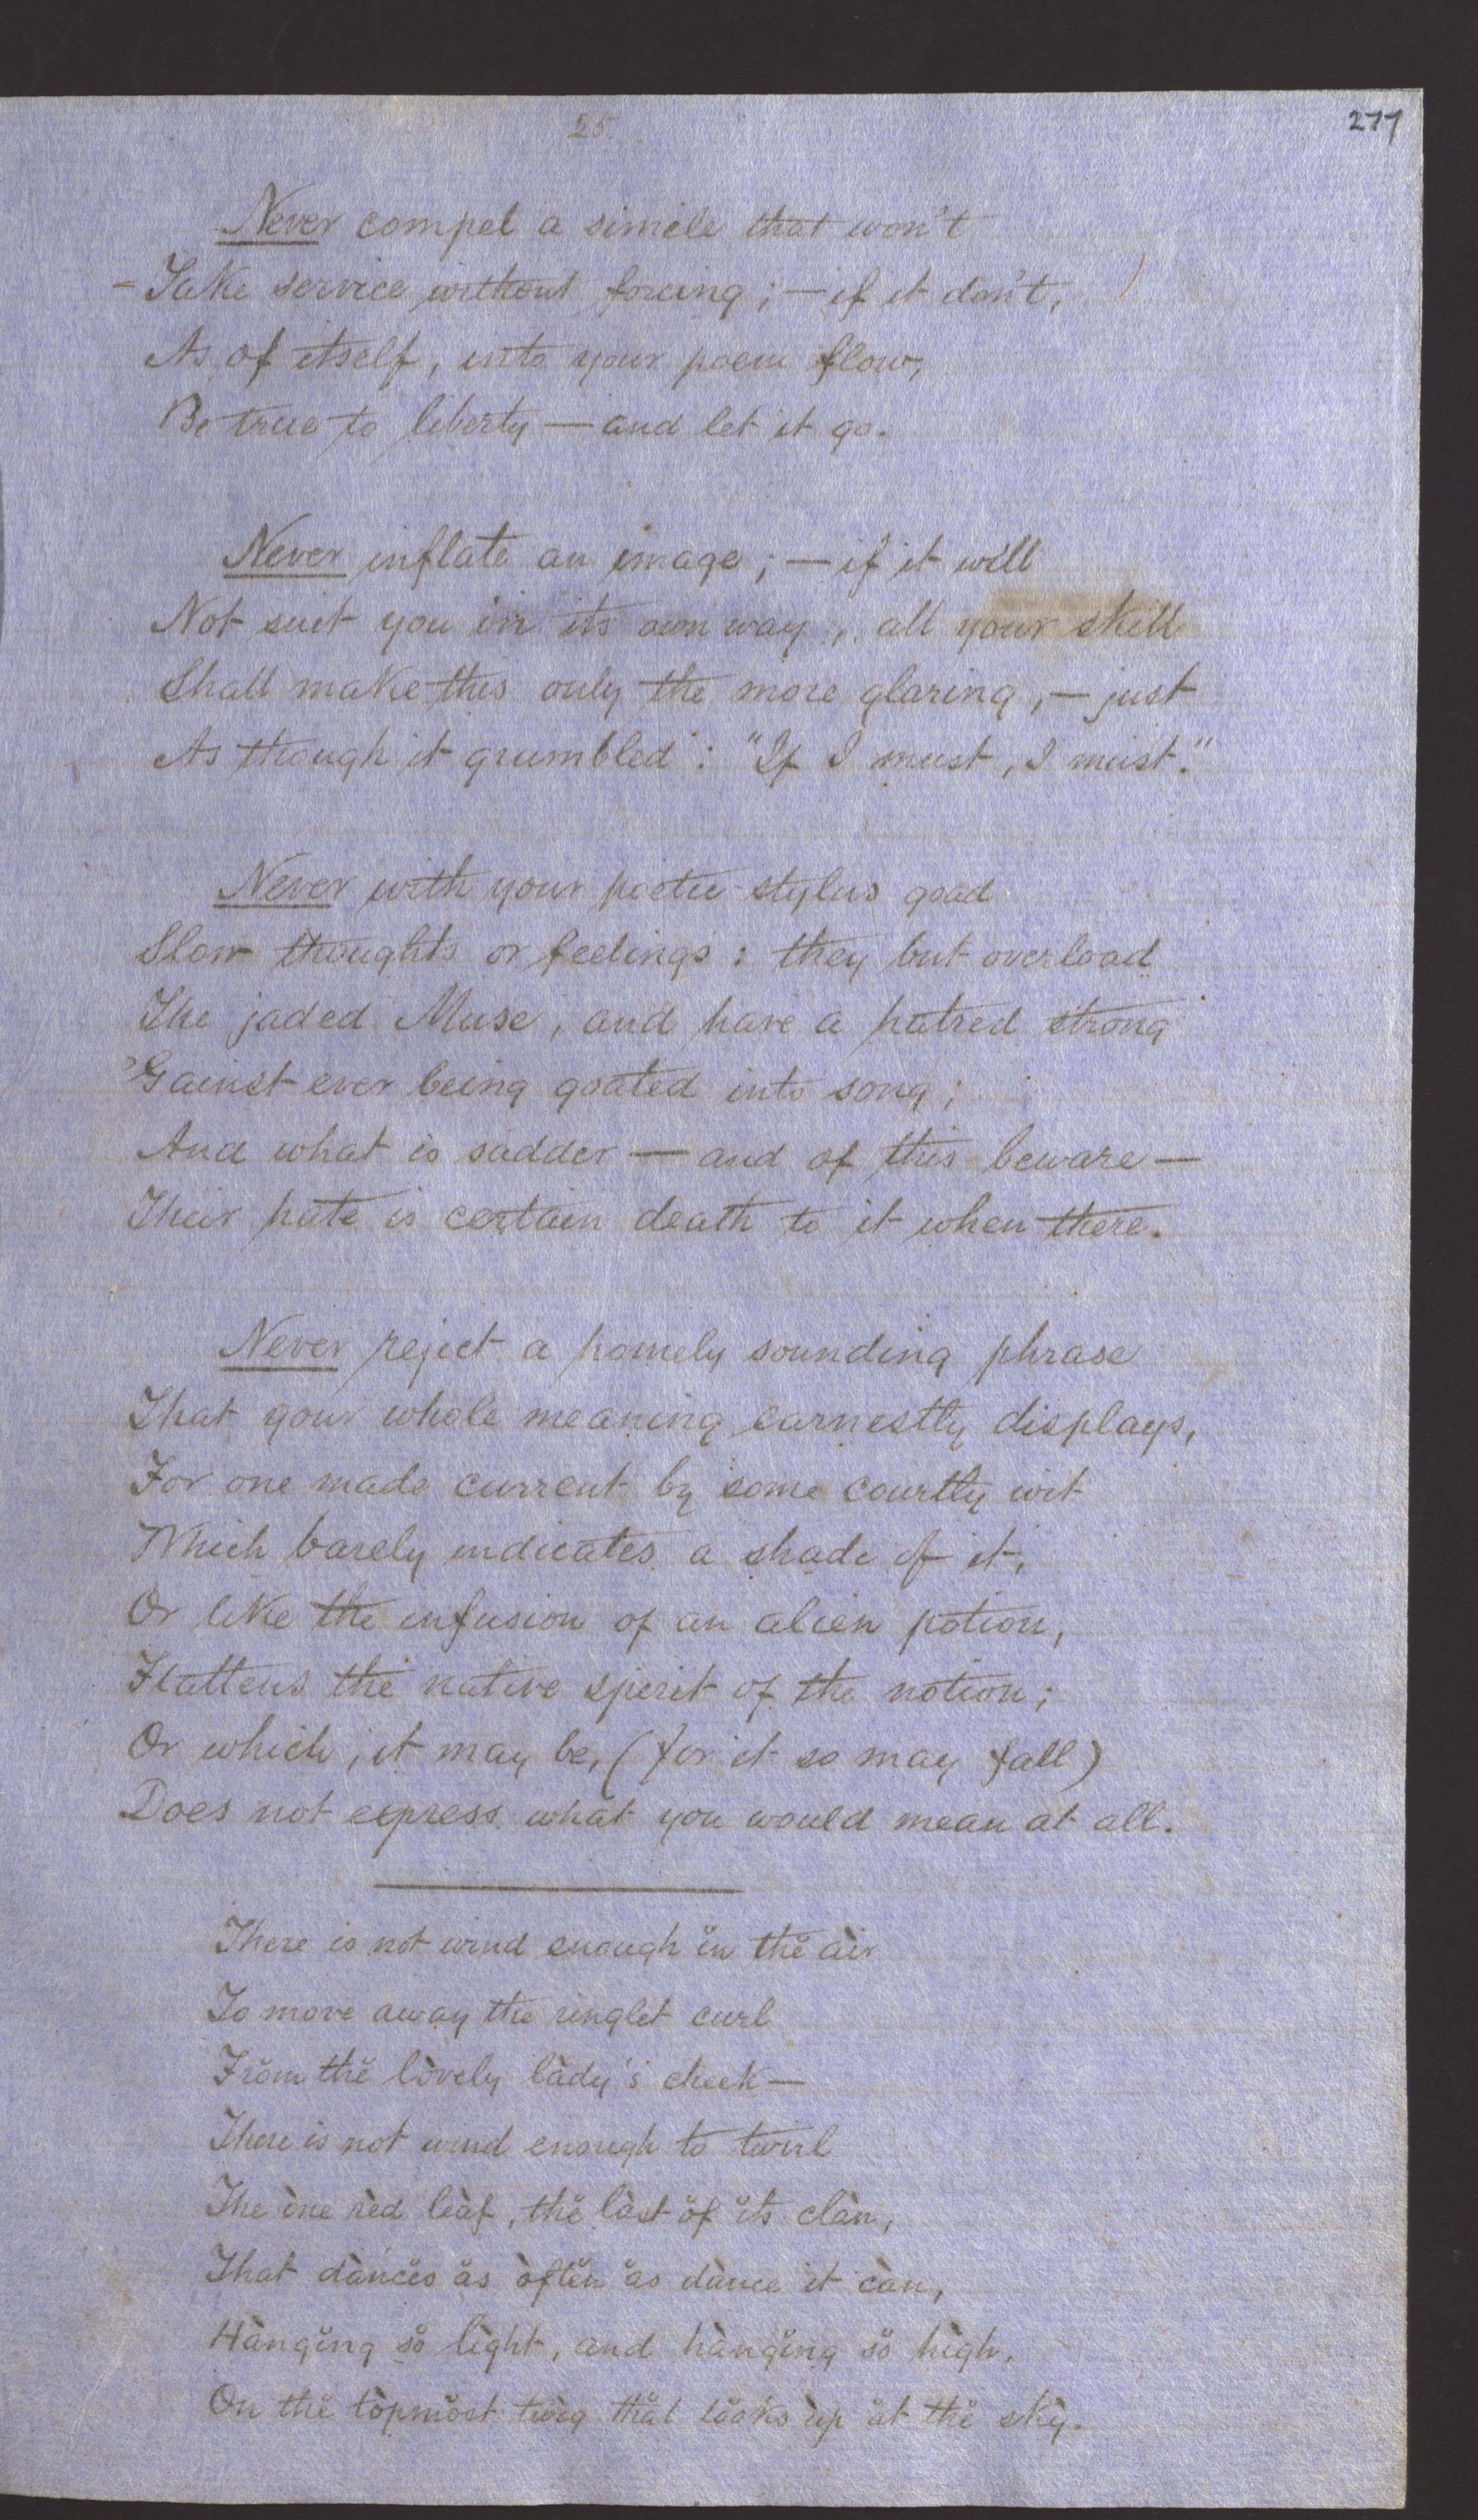 25.
277
Never compel a simile that won't
Take service without forcing; — if it don't,
As of itself, into your poem flow,
Be true to liberty — and let it go.
Never inflate an image; — if it will
Not suit you in its own way, all your skill
Shall make this only the more glaring, — just
As though it grumbled: "If I must, I must."
Never with your poetic stylus goad
Slow thoughts or feelings: they but overload
The jaded Muse, and have a hatred strong
'Gainst ever being goated into song;
And what is sadder — and of this beware —
Their hate is certain death to it when there.
Never reject a homely sounding phrase
That your whole meaning earnestly displays,
For one made current by some courtly wit
Which barely indicates a shade of it,
Or like the infusion of an alien potion,
Flattens the native spirit of the notion;
Or which, it may be, (for it so may fall)
Does not express what you would mean at all.
There is not wind enough ĭn thĕ àir
To move away the ringlet curl
Frŏm thĕ lòvely làdy's cheek —
There is not wind enough to twirl
The òne rèd lèaf, thĕ làst ŏf ĭts clàn,
That dàncĕs ăs òftĕn ăs dànce it càn,
Hàngĭng sŏ lìght, and hàngĭng sŏ hìgh,
On thĕ tòpmŏst twìg thăt lŏoks ùp ăt thĕ skỳ.